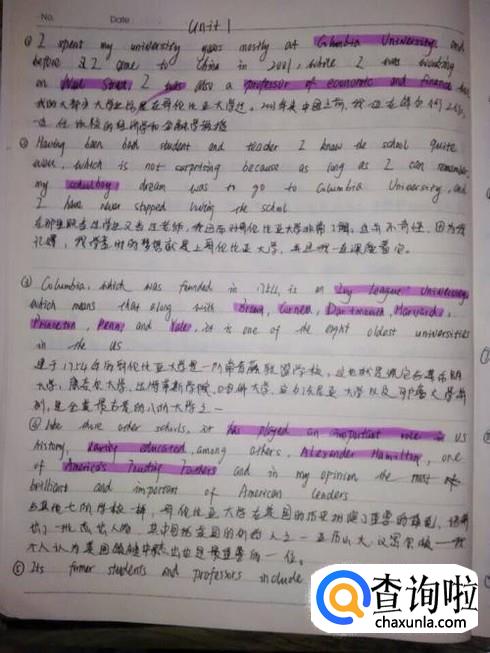 No.
Date
Unit 1
① I spent my university years mostly at Columbia University, and
before I came to China in 2001, while I was working
on Wall Street, I was also a professor of economic and finance
我的大部分大学时光是在哥伦比亚大学过。2001年来中国之前，我
一边任该校的经济学和金融学教授
② Having been both student and teacher I know the school quite
well, which is not surprising because as long as I can remember
my schoolboy dream was to go to Columbia University, and
I have never stopped loving the school
在那里既当过学生又当过老师，我对哥伦比亚大学非常了解，这并不奇怪，因为我
记得，我学生时的梦想就是上哥伦比亚大学，并且我一直深爱着它。
③ Columbia, which was founded in 1754, is an Ivy League University
which means that along with Brown, Cornell, Dartmouth, Harvard,
Princeton, Penn, and Yale, it is one of the eight oldest universities
in the US
建于1754年的哥伦比亚大学是一所常春藤联盟学校，这也就是说它与布朗
大学，康奈尔大学，达特茅斯学院，哈佛大学，普林斯顿大学以及耶鲁大学
是全美最古老的八所大学之一
④ Like those other schools, it has played an important role in US
history, having educated, among others, Alexander Hamilton, one
of America's Founding Fathers and in my opinion the most
brilliant and important of American leaders
与其他七所学校一样，哥伦比亚大学在美国的历史扮演了重要的角色，培养
出了一批杰出人物，其中包括美国的创始人之一亚历山大·汉密尔顿
个人认为美国领袖中最杰出也是最重要的一位。
⑤ Its former students and professors include
查询啦
chaxunla.com